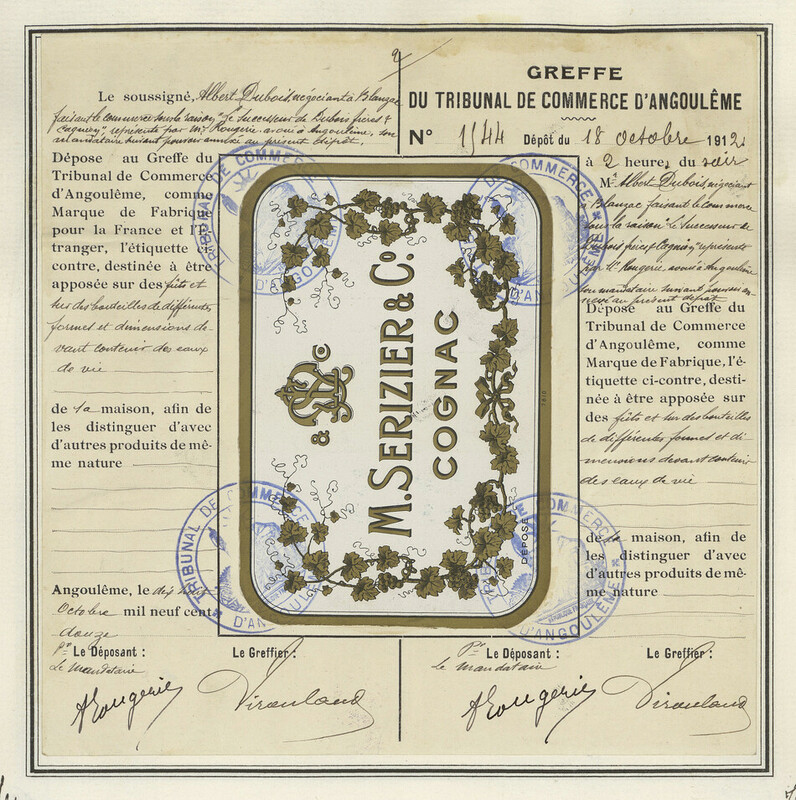 Le soussigné, Albert Dubois, négociant à Blanzac
faisant le commerce sous la raison "Le Successeur de Dubois frères &
Cagnion", représenté par Mr Rougerie, avoué à Angoulême, son
mandataire suivant pouvoir annexé au présent dépôt,
Dépose au Greffe du
Tribunal de Commerce
d'Angoulême, comme
Marque de Fabrique
pour la France et l'E-
tranger, l'étiquette ci-
contre, destinée à être
apposée sur des fûts et
sur des bouteilles de différentes
formes et dimensions de-
vant contenir des eaux
de vie
de la maison, afin de
les distinguer d'avec
d'autres produits de mê-
me nature
Angoulême, le dix huit
Octobre mil neuf cent
douze
Pr Le Déposant :
Le mandataire
Le Greffier :
Rougerie
M. SERIZIER & Co.
COGNAC
& Co
DÉPOSÉ
TRIBUNAL DE COMMERCE
D'ANGOULÊME
TRIBUNAL DE COMMERCE
D'ANGOULÊME
TRIBUNAL DE COMMERCE
D'ANGOULÊME
TRIBUNAL DE COMMERCE
D'ANGOULÊME
GREFFE
DU TRIBUNAL DE COMMERCE D'ANGOULÊME
N° 1544 Dépôt du 18 Octobre 1912
à 2 heures du soir
Mr Albert Dubois, négociant
à Blanzac faisant le commerce
sous la raison "Le Successeur de
Dubois frères & Cagnion", représenté
par Mr Rougerie, avoué à Angoulême
son mandataire suivant pouvoir an-
nexé au présent dépôt
Dépose au Greffe du
Tribunal de Commerce
d'Angoulême, comme
Marque de Fabrique, l'é-
tiquette ci-contre, desti-
née à être apposée sur
des fûts et sur des bouteilles
de différentes formes et di-
mensions devant contenir
des eaux de vie
de la maison, afin de
les distinguer d'avec
d'autres produits de mê-
me nature
Pr Le Déposant :
Le mandataire
Le Greffier :
Rougerie